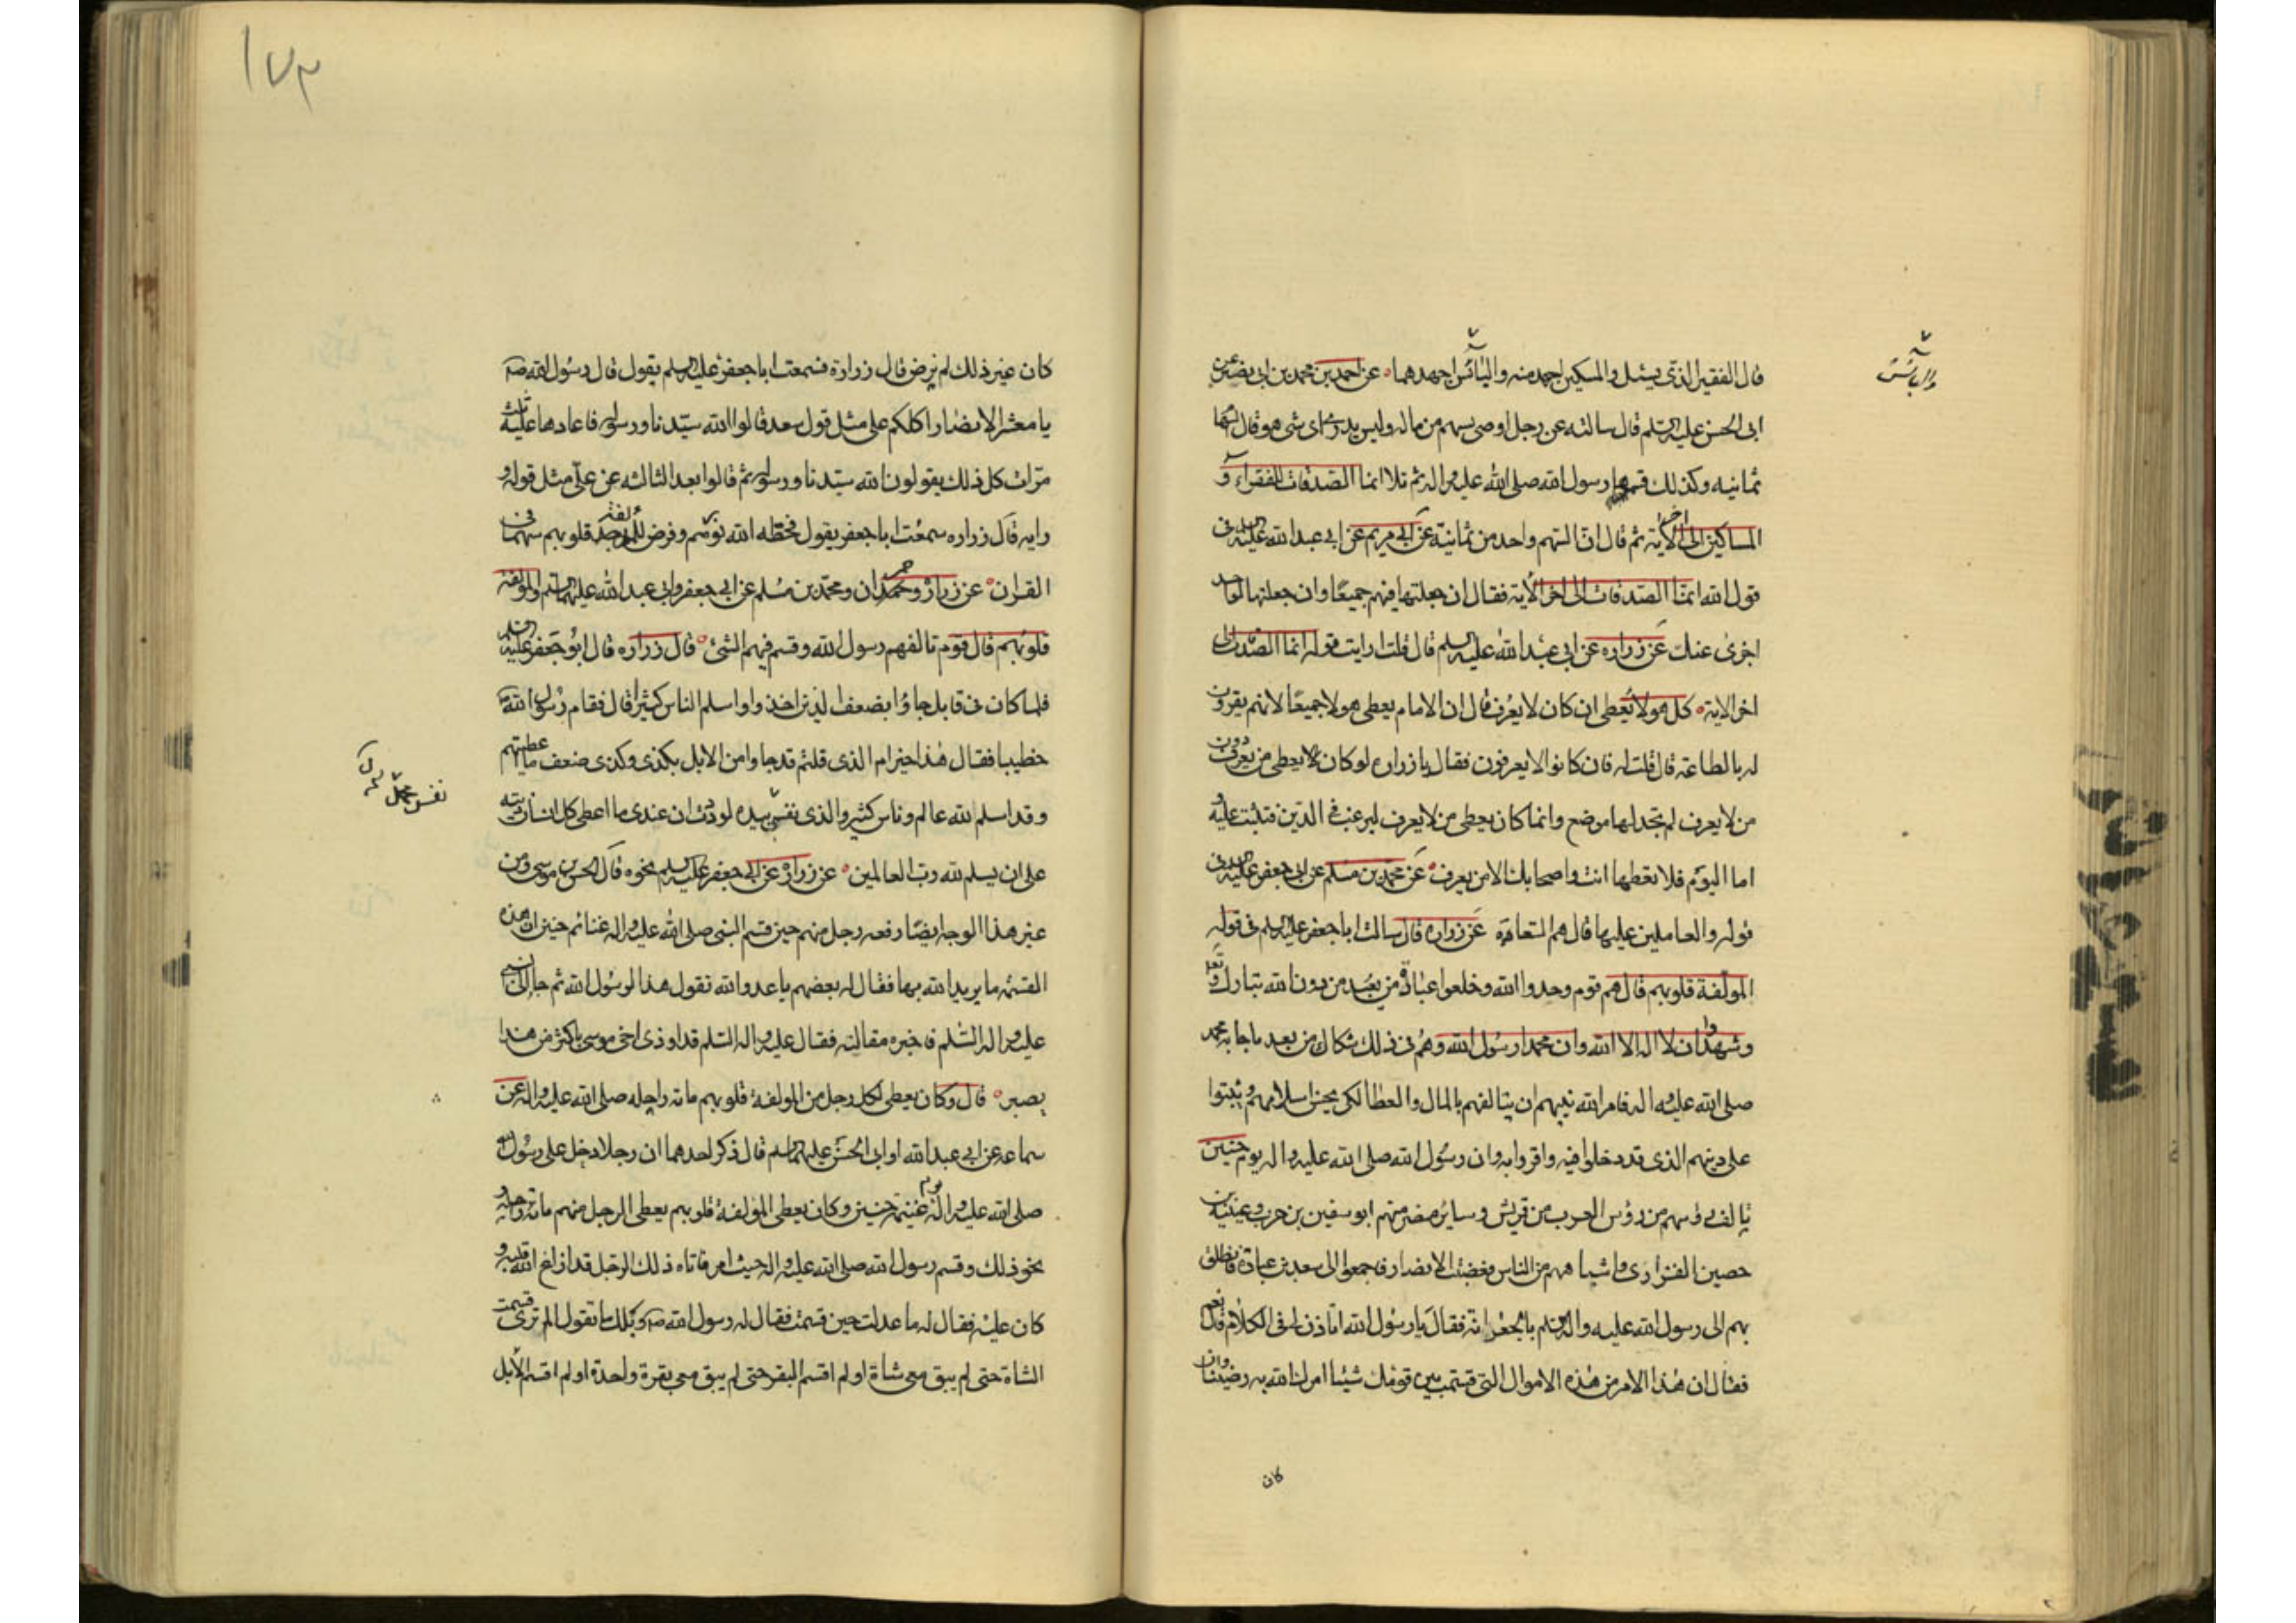 قال الفقير الذی یسئل والمسكين اجهد منه والبائس اجهدهما عن احمد بن محمد بن ابی نصر عن
والبائس
ابی الحسن علیه السلم قال سالته عن رجل اوصی بسهم من ماله ولیس یدری ای شی هو قال السهام
ثمانیه وكذلك قسمها رسول الله صلی الله علیه واله ثم تلا انما الصدقات للفقراء و
المساكین الی اخر الایة ثم قال ان السهم واحد من ثمانیة عن ابی مریم عن ابی عبد الله علیه السلم فی
قول الله انما الصدقات الی اخر الایة فقال ان جعلتها فیهم جمیعا وان جعلتها لواحد
اجزی عنك عن زراره عن ابی عبد الله علیه السلم قال قلت ارایت قوله انما الصدقات الی
اخر الایة كل هولا یعطی ان كان لا یعرف قال ان الامام یعطی هولا جمیعا لانهم یقرون
له بالطاعة قال قلت له فان كانوا لا یعرفون فقال یا زراره لو كان یعطی من یعرف دون
من لا یعرف لم یجد لها موضع وانما كان یعطی من لا یعرف لیرغب فی الدین فیثبت علیه و
اما الیوم فلا تعطها انت واصحابك الا من یعرف عن محمد بن مسلم عن ابی جعفر علیه السلم فی
قوله والعاملین علیها قال هم السعاة عن زراره قال سالت ابا جعفر علیه السلم فی قوله
المولفة قلوبهم قال هم قوم وحدوا الله وخلعوا عبادة من یعبد من دون الله تبارك وتعلی
وشهدوا ان لا اله الا الله وان محمدا رسول الله وهم فی ذلك شكاك من بعد ما جا به محمد
صلی الله علیه واله فامر الله نبیهم ان یتالفهم بالمال والعطا لكی یحسن اسلامهم ویثبتوا
علی دینهم الذی قد دخلوا فیه واقروا به وان رسول الله صلی الله علیه واله یوم حنین
تالف رؤسهم من رؤس العرب من قریش وسایر مضر منهم ابو سفین بن حرب وعینیة بن
حصین الفزاری واشباههم من الناس فغضبت الانصار فاجمعوا الی سعد بن عبادة فانطلق
بهم الی رسول الله علیه واله السلم بالجعرانة فقال یا رسول الله اتاذن لی فی الكلام قال نعم
فقال ان هذا الامر من هذه الاموال التی قسمت بین قومك شیئا امرك الله به رضینا وان
كان
١٧٣
كان غیر ذلك لم نرض قال زرارة فسمعت ابا جعفر علیه السلم یقول قال رسول الله ص
یا معشر الانصار اكلكم علی مثل قول سعد قالوا الله سیدنا ورسوله فاعادها علیه ثلث
مرات كل ذلك یقولون الله سیدنا ورسوله ثم قالوا بعد الثالثه نحن علی مثل قوله و
رایه قال زراره سمعت ابا جعفر یقول فحط الله نورهم وفرض للمولفة قلوبهم سهما فی
القران عن زرارة وحمران ومحمد بن مسلم عن ابی جعفر وابی عبد الله علیهما السلم والمولفة
قلوبهم قال قوم تالفهم رسول الله وقسم فیهم الشئ قال زراره قال ابو جعفر علیه السلم
فلما كان فی قابل جاؤا بضعف الذین اخذوا واسلم الناس كثیر قال فقام رسول الله ص
خطیبا فقال هذا خیر ام الذی قلتم قد جاوا من الابل بكذی وكذی ضعف ما اعطیتهم
وقد اسلم لله عالم وناس كثیر والذی نفسی بیده لوددت ان عندی ما اعطی كل انسان دیته
نفس محمد
علی ان یسلم لله رب العالمین عن زراره عن ابی جعفر علیه السلم نحوه قال الحسن بن موسی ومن
غیر هذا الوجه ایضا رفعه رجل منهم حین قسم النبی صلی الله علیه واله غنائم حنین ان هذه
القسمة ما یرید الله بها فقال له بعضهم یا عدو الله تقول هذا لرسول الله ثم جا الی النبی
علیه واله السلم فاخبره مقالته فقال علیه واله السلم قد اوذی اخی موسی باكثر من هذا
بصبر قال وكان یعطی لكل رجل من المولفة قلوبهم مائة راحله صلی الله علیه واله عن
سماعه عن ابی عبد الله او ابی الحسن علیهما السلم قال ذكر احدهما ان رجلا دخل علی رسول الله
صلی الله علیه واله یوم غنیمة حنین وكان یعطی المولفة قلوبهم یعطی الرجل منهم مائة راحلة و
نحو ذلك وقسم رسول الله صلی الله علیه واله حیث امر فاتاه ذلك الرجل قد ازاغ الله قلبه و
كان علیه فقال له ما عدلت حین قسمت فقال له رسول الله ص ویلك ما تقول الم تری قسمت
الشاة حتی لم یبق معی شاة او لم اقسم البقر حتی لم یبق معی بقرة واحدة او لم اقسم الابل